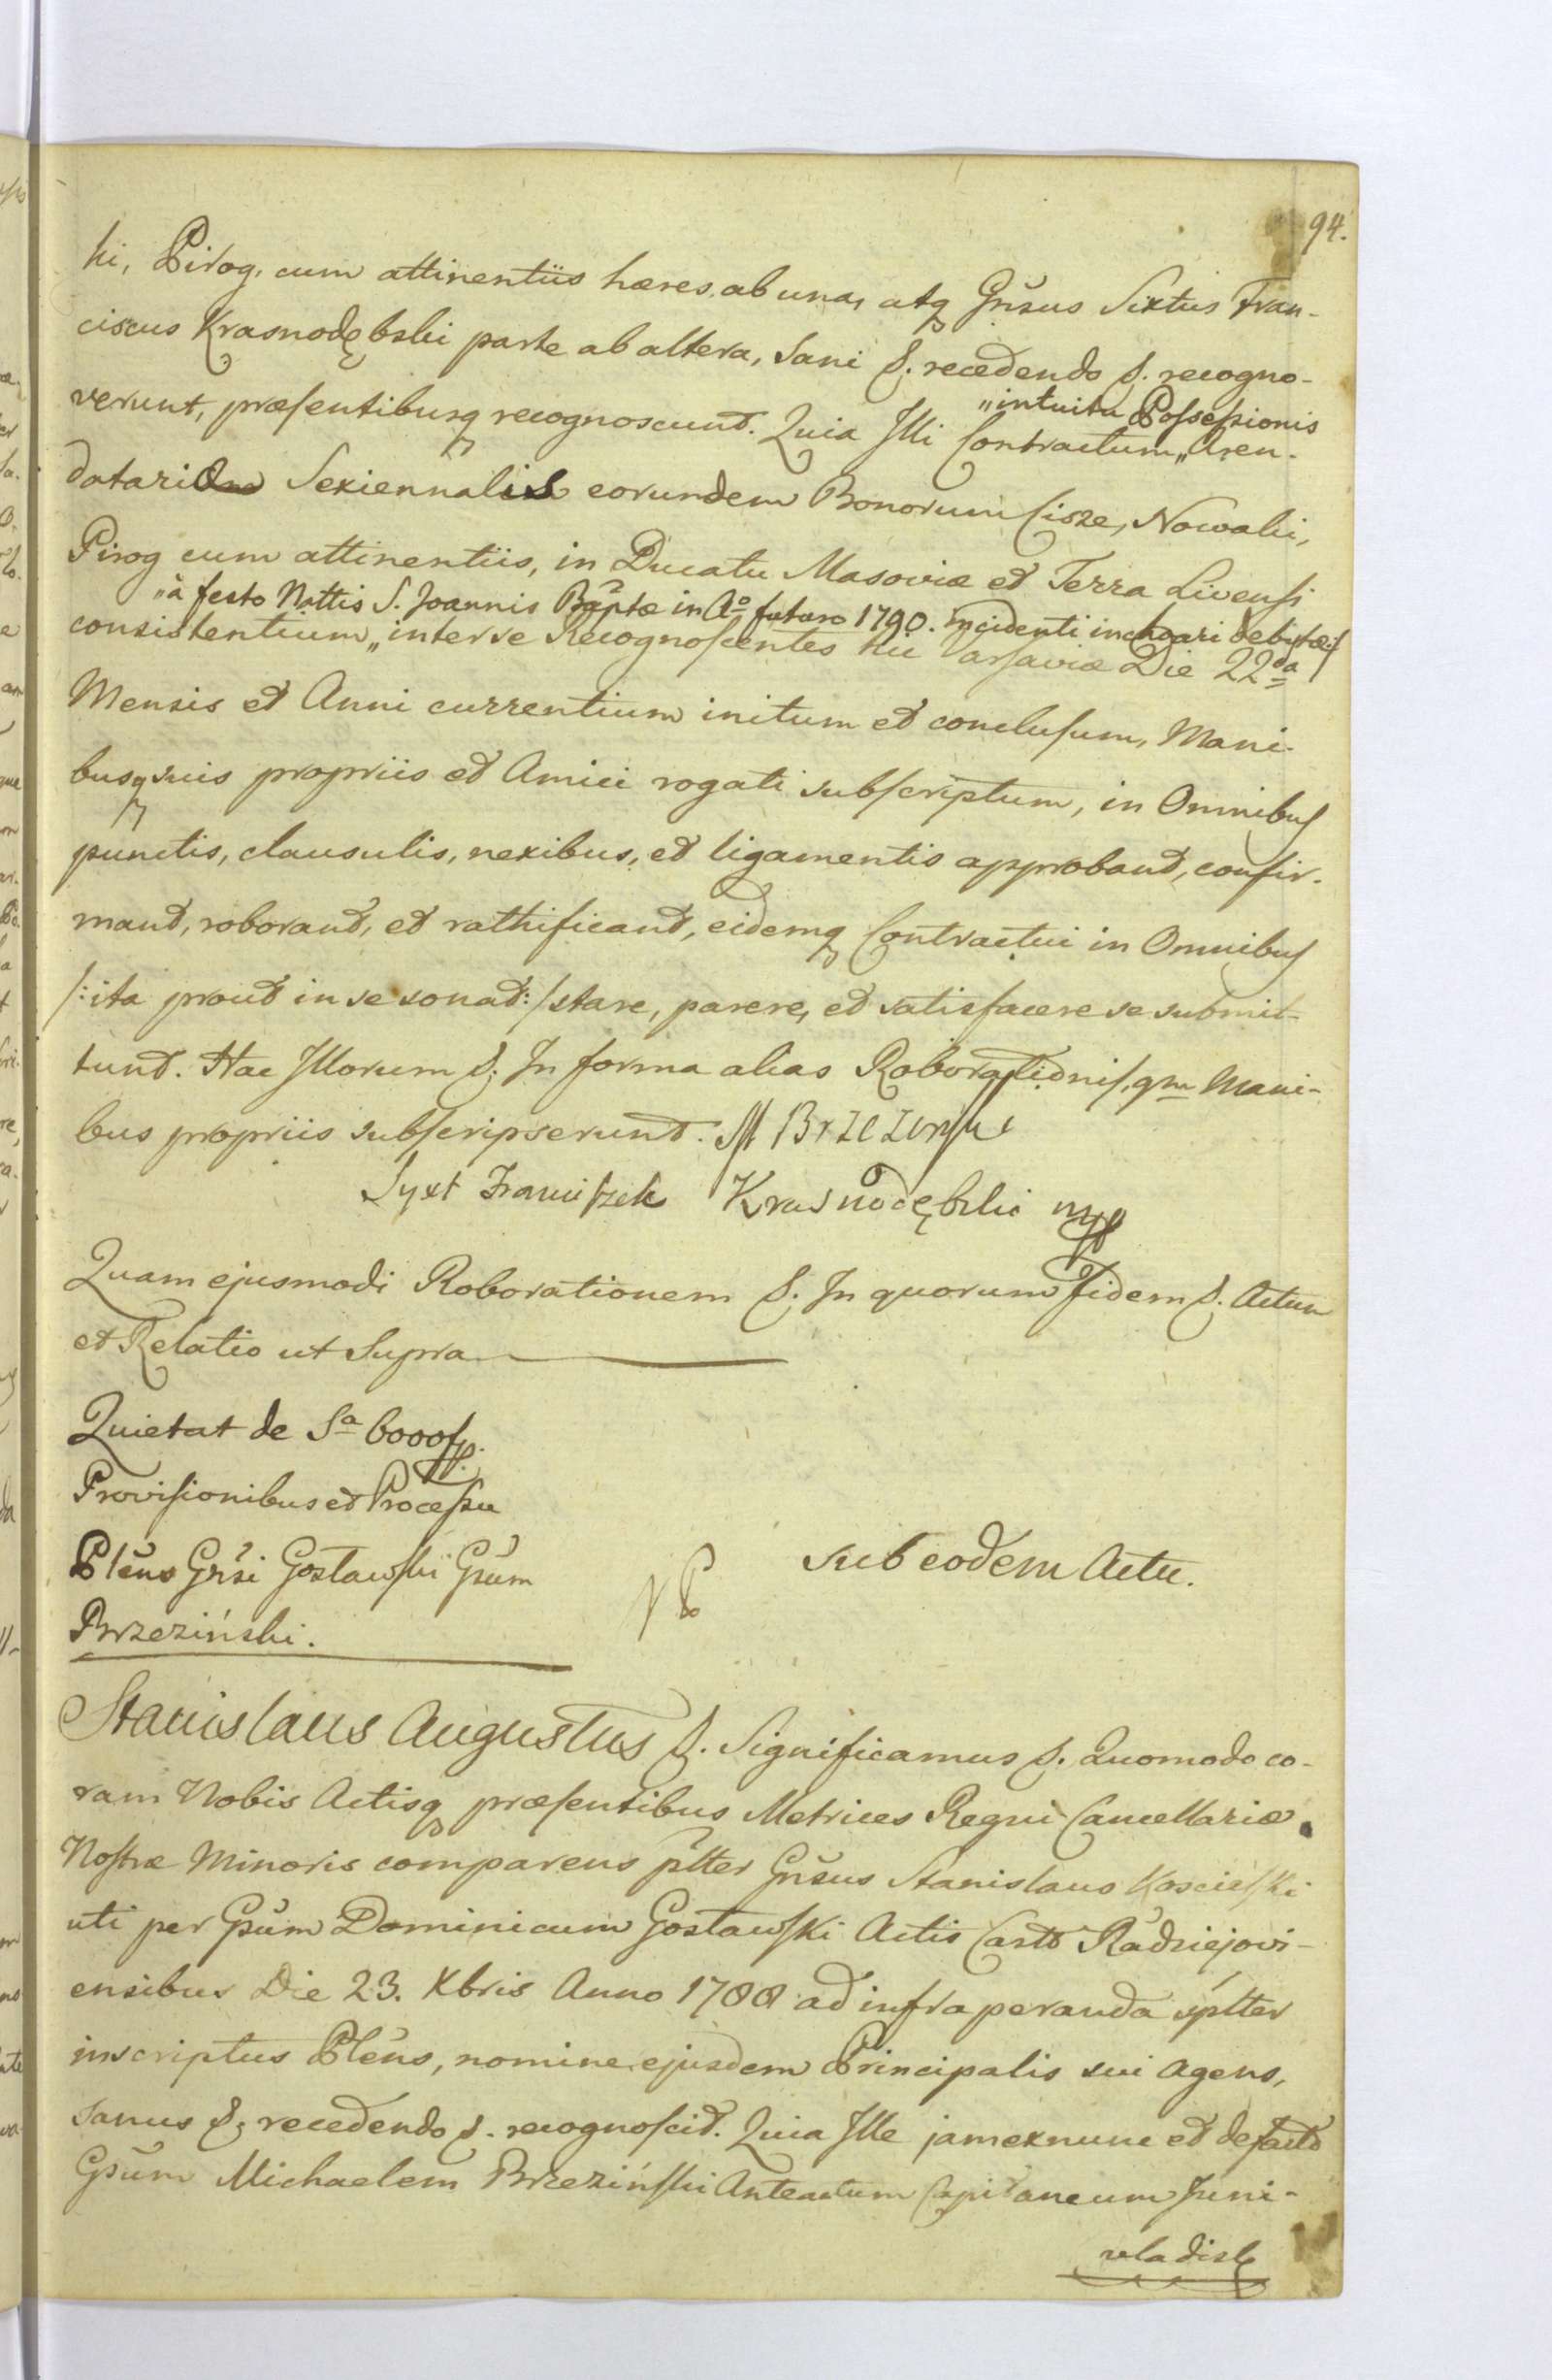 94.
ki, Pirog, cum attinentiis hæres ab una, atq Gnsus Sixtus Fran-
ciscus Krasnodębski parte ab altera, Sani &. recedendo &. recogno-
„intuitu Possessionis
verunt, præsentibusq recognoscunt. Quia Illi Contractum„ Aren-
datariæ Sexiennalis eorundem Bonorum Cisze, Nowaki,
Pirog cum attinentiis, in Ducatu Masoviæ et Terra Livensi
„à festo Nattis S. Joannis Baptæ in Aō futuro 1790. incidenti inchoari debitæ
consistentium„ inter se Recognoscentes hic Varsaviæ Die 22da
Mensis et Anni currentium initum et conclusum, Mani-
busq suis propriis et Amici rogati subscriptum, in Omnibus
punctis, clausulis, nexibus, et ligamentis approbant, confir-
mant, roborant, et rathificant, eidemq Contractui in Omnibus
/: ita prout in se sonat :/ stare, parere, et satisfacere se submit-
tunt. Hac Illorum &. In forma alias Roborationis, qm Mani-
bus propriis subscripserunt. M Brzezinski
Syxt Franciszek Krasnodębski mp
Quam ejusmodi Roborationem &. In quorum Fidem &. Actum
et Relatio ut Supra
Quietat de Sa 6000 fp.
Provisionibus et Processu
Plēns Gnsi Gostawski Gsum
Brzeziński.
Sub eodem Actu.
Stanislaus Augustus &. Significamus &. Quomodo co-
ram Nobis Actisq præsentibus Metrices Regni Cancellariæ
Nostræ Minoris comparens pltter Gnsus Stanislaus Koscielski
uti per Gsum Dominicum Gostawski Actis Castr Radziejovi-
ensibus Die 23. Xbris Anno 1788 ad infra peranda spltter
inscriptus Plēns, nomine ejusdem Principalis sui agens,
sanus &. recedendo &. recognoscit. Quia Ille jam ex nunc et de facto
Gsum Michaelem Brzeziński Anteactum Capitaneum Juni-
vladisl